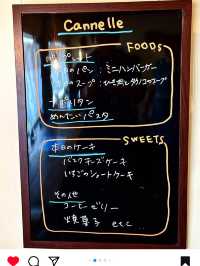 Cannelle
FOODS
のパン：ミニハンバーガー
のスープ：ひき肉と
ナポリタン
めんたいパスタ
SWEETS
本日のケーキ
バスクチーズケーキ
いちごのショートケーキ
その他
コーヒーゼリー
焼菓子 etc...